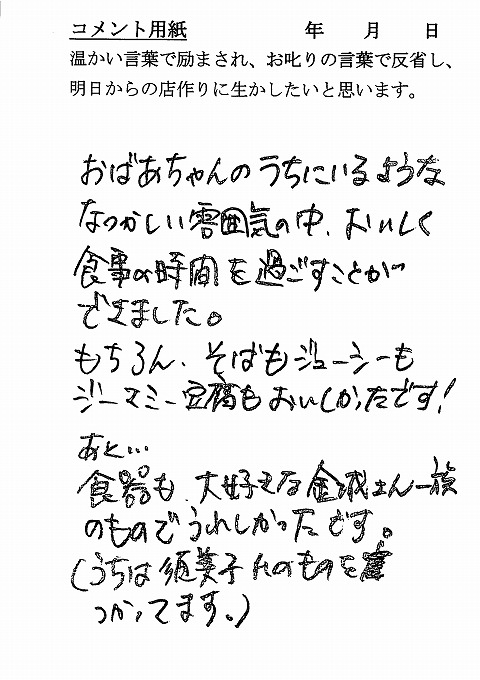 コメント用紙 年 月 日
温かい言葉で励まされ、お叱りの言葉で反省し、
明日からの店作りに生かしたいと思います。
おばあちゃんのうちにいるような
なつかしい雰囲気の中、おいしく
食事の時間を過ごすことが
できました。
もちろん、そばもジューシーも
ジーマミー豆腐もおいしかったです!
あと…
食器も、大好きな金城さん一族
のものでうれしかったです。
(うちは須美子さんのものを
つかってます。)